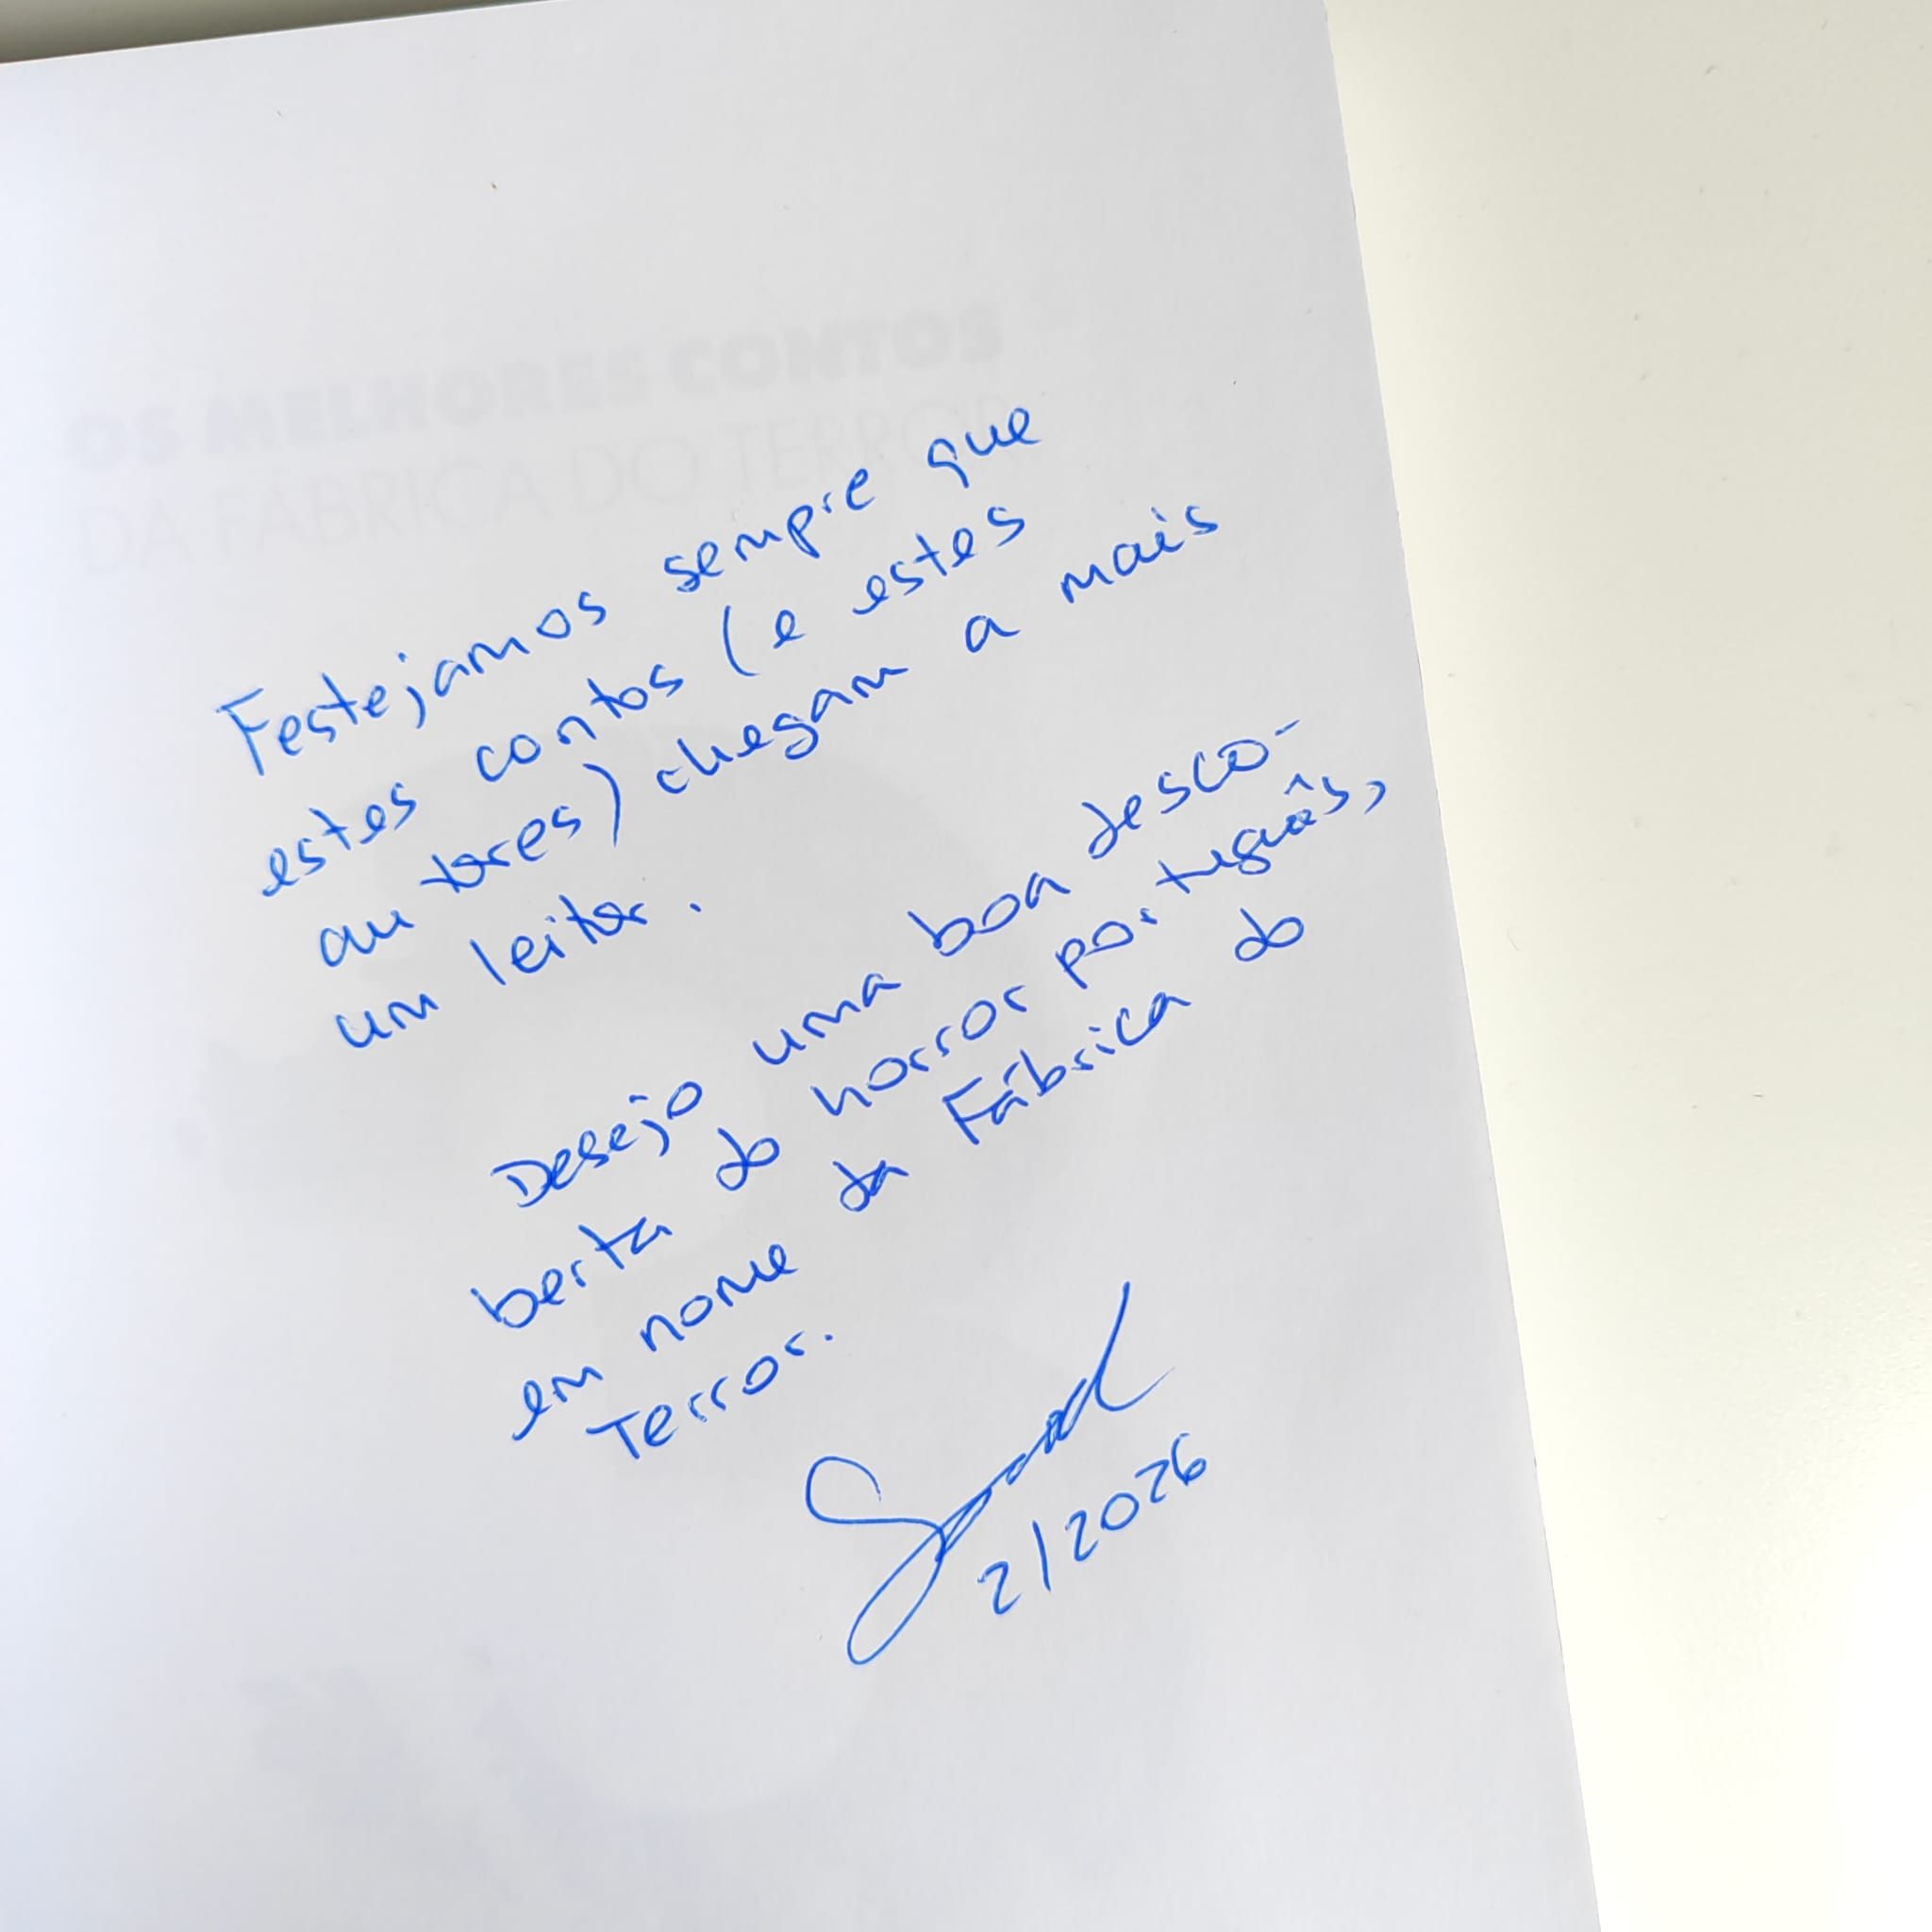 OS MELHORES CONTOS
DA FÁBRICA DO TERROR
Festejamos sempre que
estes contos (e estes
autores) chegam a mais
um leitor.
Desejo uma boa desco-
berta do horror português,
em nome da Fábrica do
Terror.
2/2026